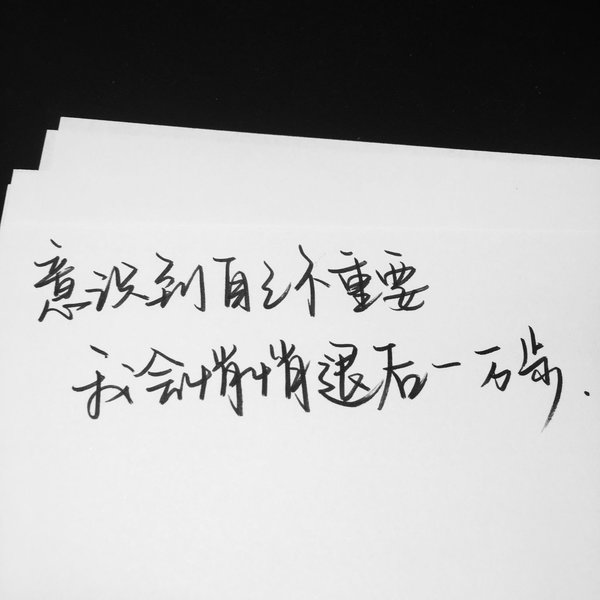 意识到自己不重要
我会悄悄退后一万步.